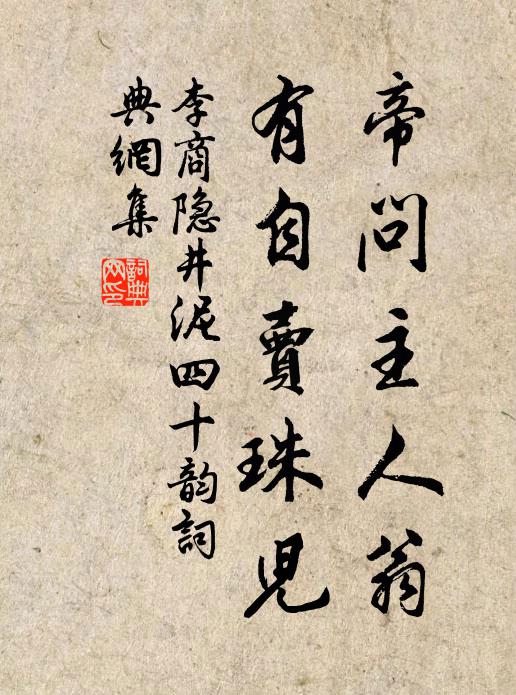 帝問主人翁
有自賣珠兒
李商隐井泥四十韵詞
典網集
詞典
网印